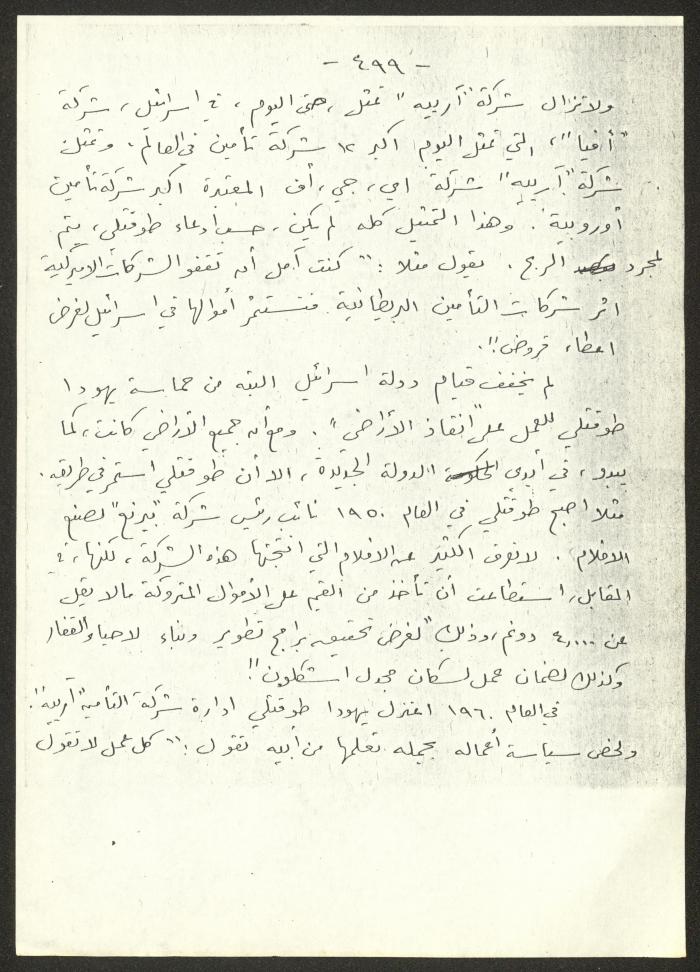 - ٤٩٩ -
ولا تزال شركة "آرييه" تمثل، حتى اليوم، في اسرائيل، شركة
"أفيا"، التي تمثل اليوم اكبر ١٢ شركة تأمين في العالم. وتمثل
شركة "آرييه" شركة اي، جي، أف المعتبرة اكبر شركة تأمين
أوروبية. وهذا التمثيل كله لم يكن، حسب ادعاء طوقتلي، يتم
لمجرد الربح. يقول مثلا: "كنت آمل أن تقفو الشركات الاميركية
اثر شركات التأمين البريطانية فتستثمر أموالها في اسرائيل لغرض
اعطاء قروض".
لم يخفف قيام دولة اسرائيل البته من حماسة يهودا
طوقتلي للعمل على "انقاذ الأراضي". ومع أن جميع الأراضي كانت، كما
يبدو، في أيدي الدولة الجديدة، الا أن طوقتلي استمر في طريقه.
مثلا اصبح طوقتلي في العام ١٩٥٠ نائب رئيس شركة "بيرنع" لصنع
الافلام. لا نعرف الكثير عن الافلام التي انتجتها هذه الشركة، لكنها، في
المقابل، استطاعت أن تأخذ من القيم على الأموال المتروكة ما لا يقل
عن ٤٠٠٠ دونم، وذلك "لغرض تحقيق برامج تطوير وبناء لاحياء القفار
وكذلك لضمان عمل لسكان مجدل اشكلون"!
في العام ١٩٦٠ اعتزل يهودا طوقتلي ادارة شركة التأمين "آرييه".
ولخص سياسة أعماله بجملة تعلمها من أبيه تقول: "كل عمل لا تقول